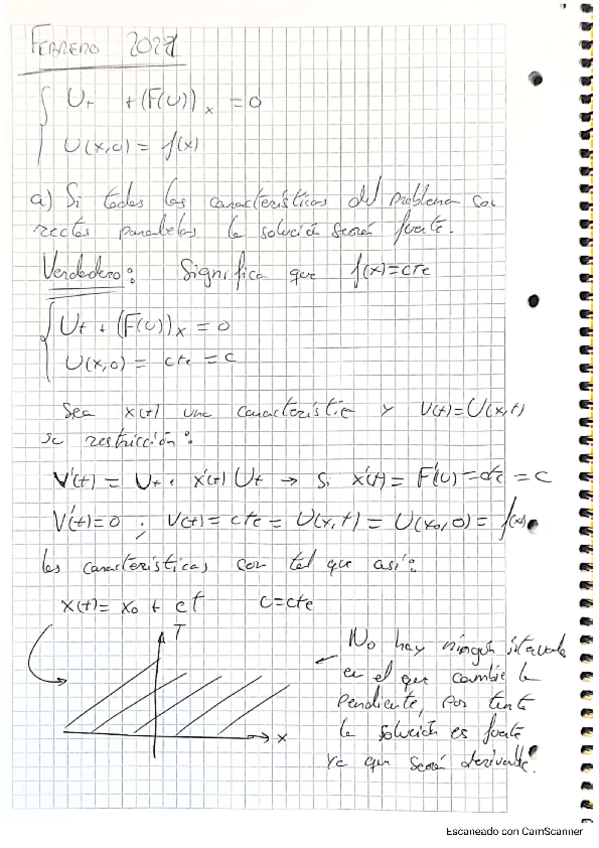 FEBRERO 2021
Ut + (F(U))x = 0
U(x,0) = f(x)
a) Si todas las características del problema son
rectas paralelas la solución será fuerte.
Verdadero: Significa que f(x)=cte
Ut + (F(U))x = 0
U(x,0) = cte = c
Sea x(t) una característica y V(t)=U(x,t)
su restricción:
V'(t) = Ut + x'(t) Ut → Si x'(t) = F'(U) = cte = c
V'(t)=0 ; V(t) = cte = U(x,t) = U(x0,0) = f(x0)
las características con tal que así:
x(t)= x0 + ct c=cte
T
x
No hay ningún intervalo
en el que cambie la
pendiente, por tanto
la solución es fuerte
ya que será derivable.
Escaneado con CamScanner